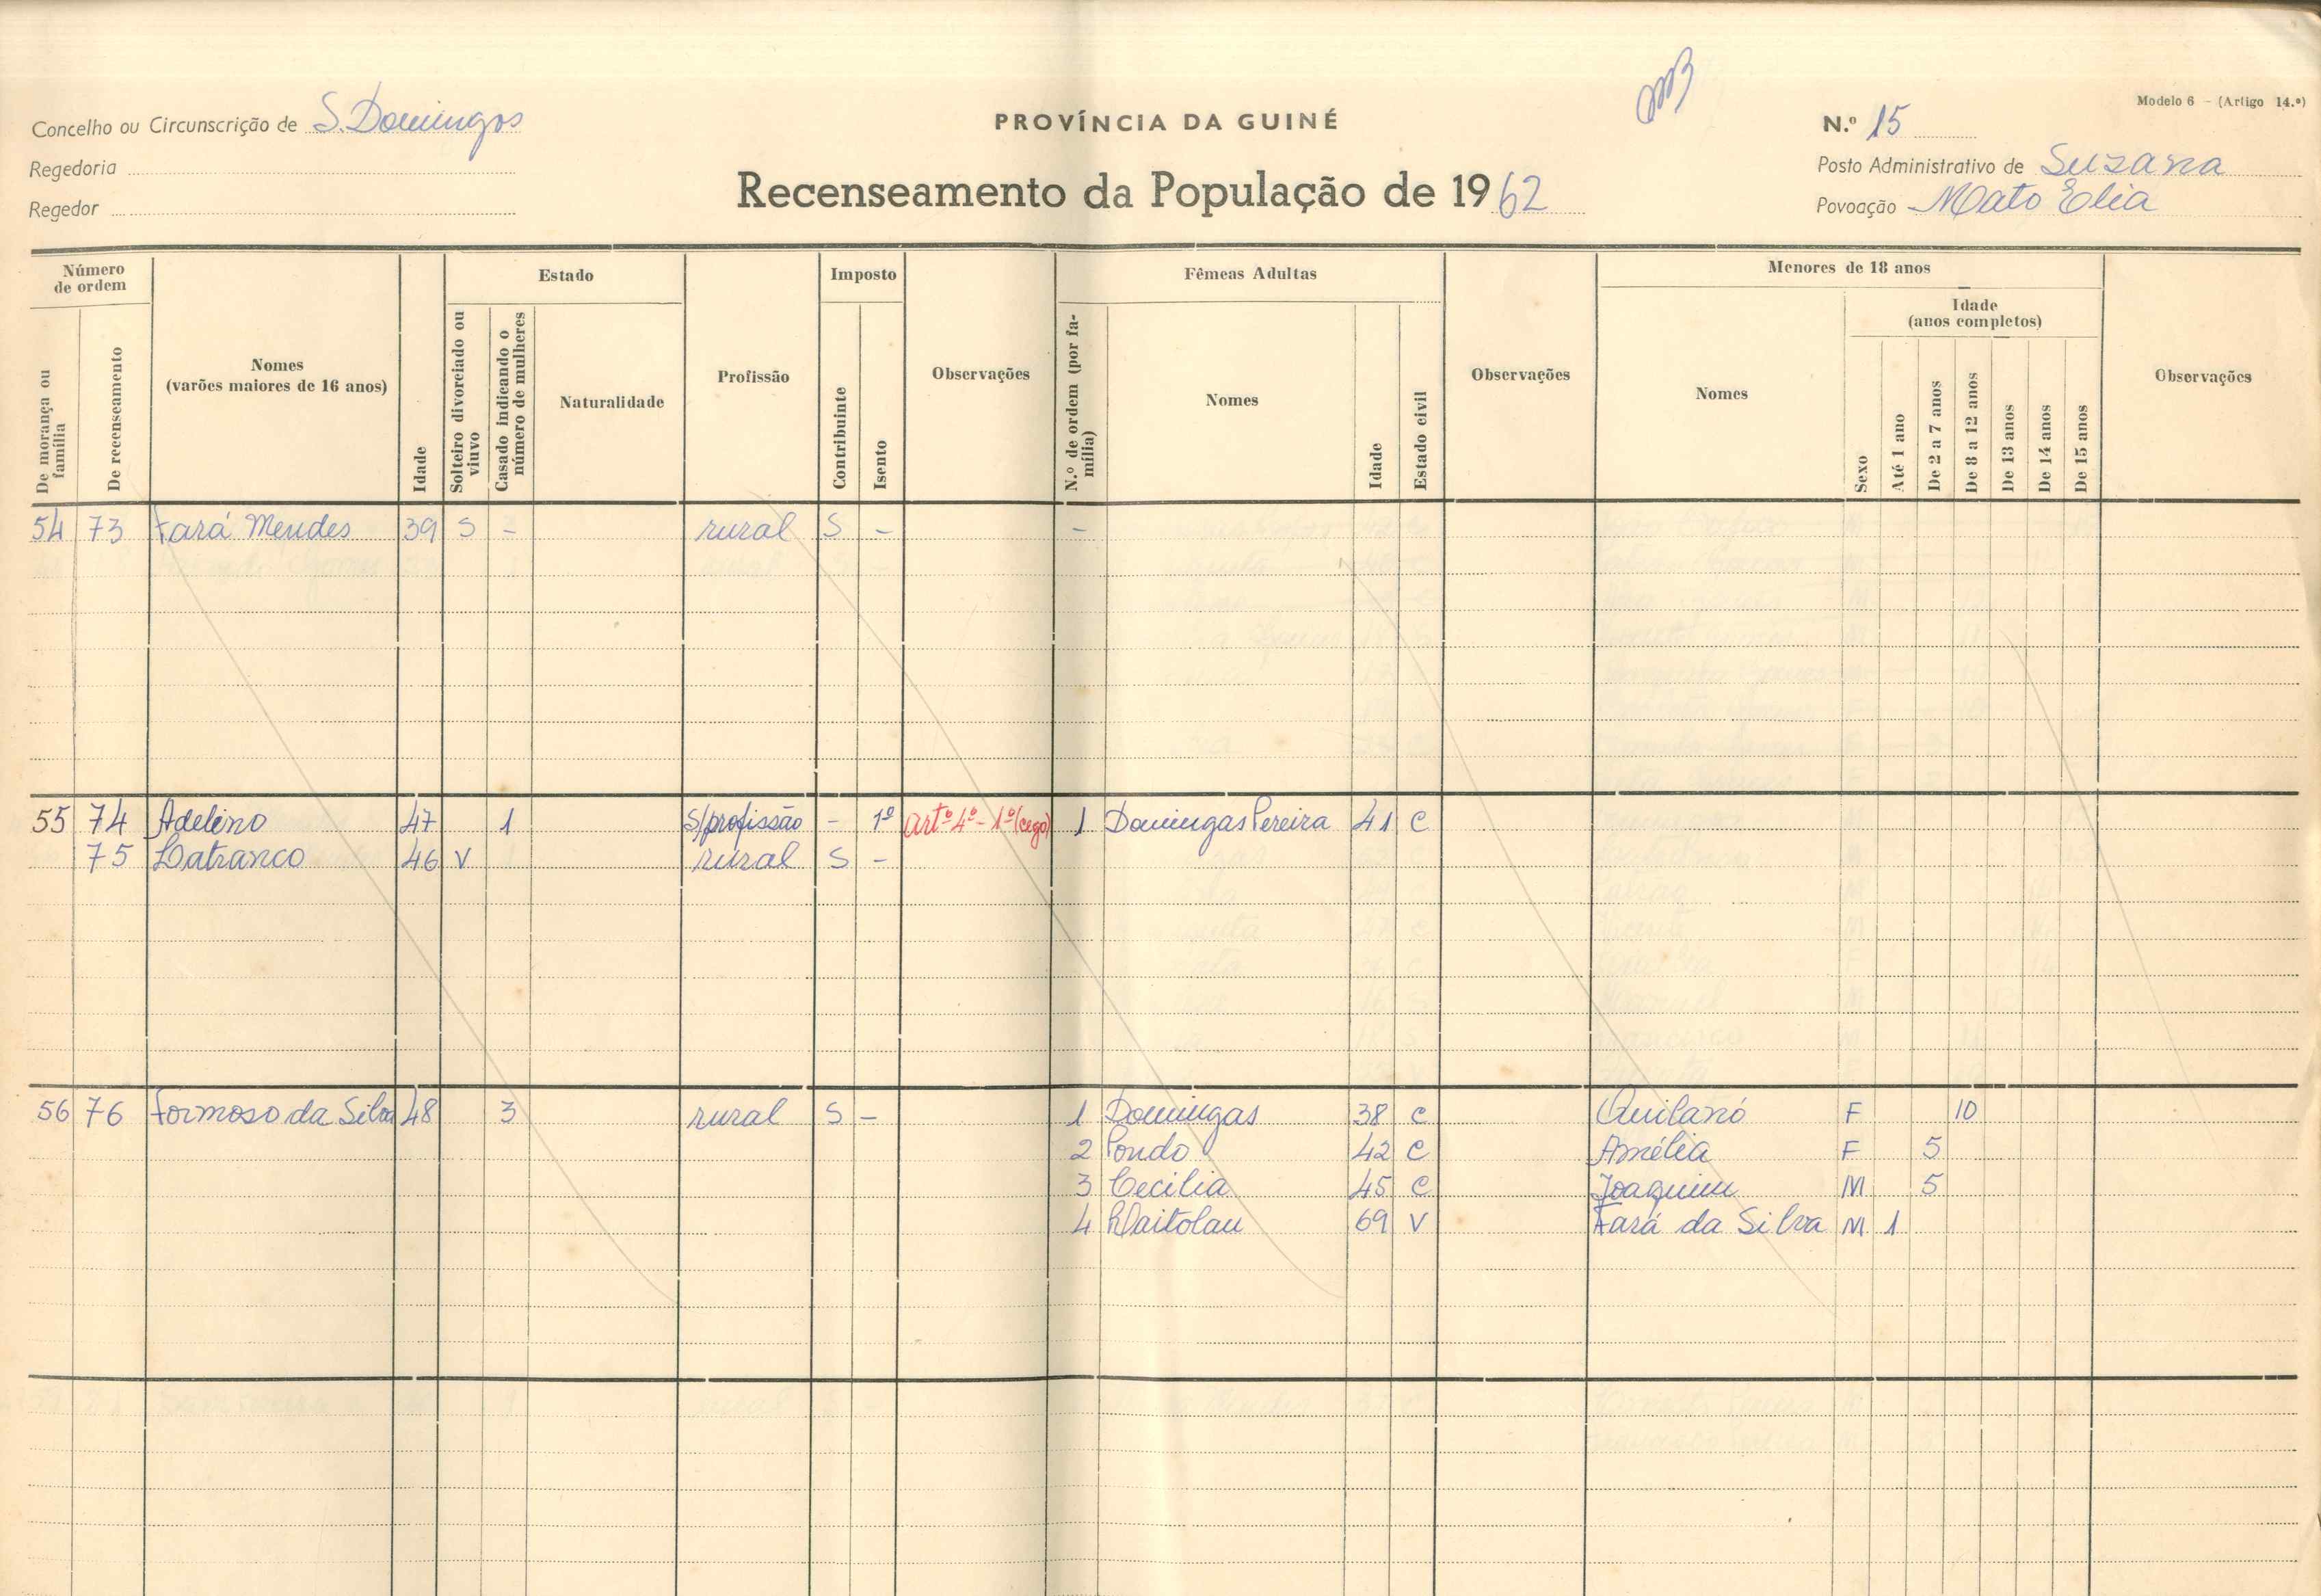 Modelo 6 - (Artigo 14.º)
Concelho ou Circunscrição de S. Domingos
PROVÍNCIA DA GUINÉ
N.º 15
Regedoria
Recenseamento da População de 1962
Posto Administrativo de Suzana
Regedor
Povoação Mato Elia
Número de ordem
Estado
Imposto
Fêmeas Adultas
Menores de 18 anos
Idade (anos completos)
De morança ou família
De recenseamento
Nomes (varões maiores de 16 anos)
Idade
Solteiro divorciado ou viuvo
Casado indicando o número de mulheres
Naturalidade
Profissão
Contribuinte
Isento
Observações
N.º de ordem (por família)
Nomes
Idade
Estado civil
Observações
Nomes
Sexo
Até 1 ano
De 2 a 7 anos
De 8 a 12 anos
De 13 anos
De 14 anos
De 15 anos
Observações
54 73 Fará Mendes 39 S - rural S - -
55 74 Adelino 47 1 S/profissão - 1º artº 4º - 1º (cego) 1 Domingas Pereira 41 C
75 46 V rural S -
56 76 Formoso da Silva 48 3 rural S - 1 Domingas 38 C Quilanó F 10
2 Pondo 42 C Amélia F 5
3 Cecilia 45 C Joaquim M 5
4 69 V Fará da Silva M 1